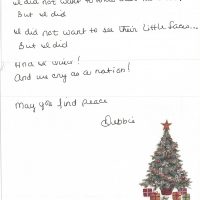 we did not want to
But we did
we did not want to see their little faces...
But we did
And we cry as a nation!
May you find peace
Debbie